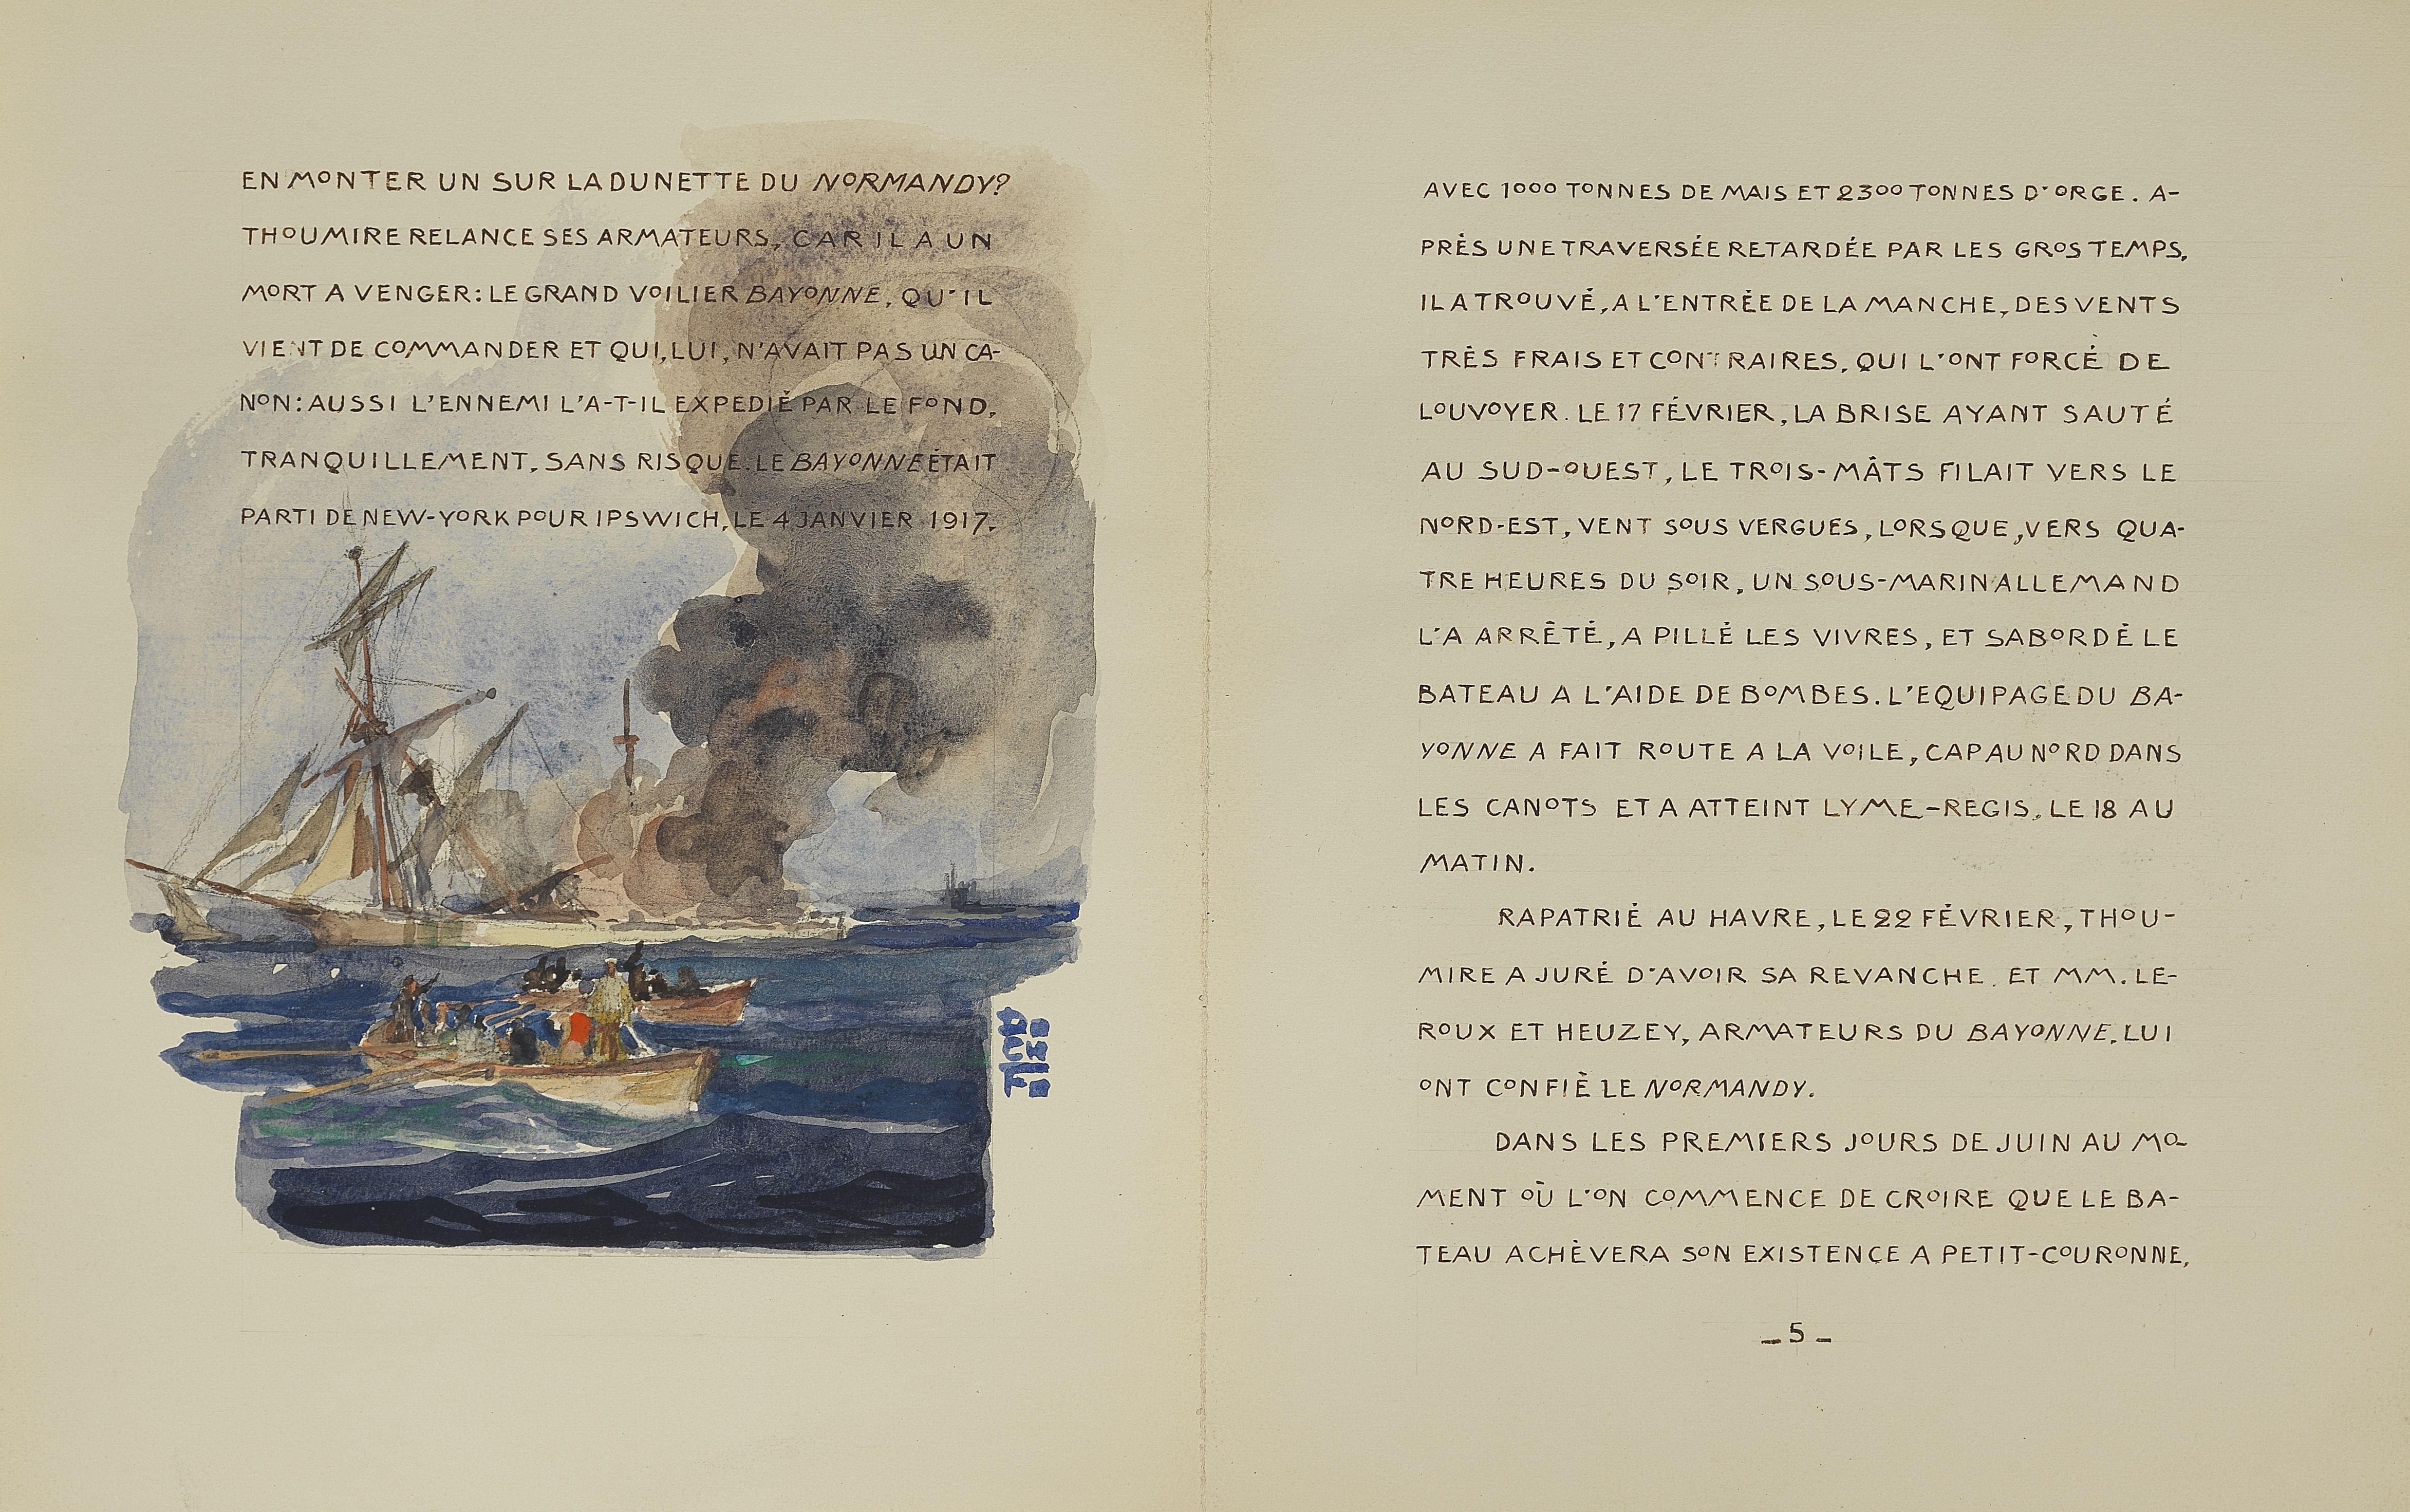 EN MONTER UN SUR LA DUNETTE DU NORMANDY?
THOUMIRE RELANCE SES ARMATEURS, CAR IL A UN
MORT A VENGER: LE GRAND VOILIER BAYONNE, QU'IL
VIENT DE COMMANDER ET QUI, LUI, N'AVAIT PAS UN CA-
NON: AUSSI L'ENNEMI L'A-T-IL EXPEDIÉ PAR LE FOND,
TRANQUILLEMENT, SANS RISQUE. LE BAYONNE ÉTAIT
PARTI DE NEW-YORK POUR IPSWICH, LE 4 JANVIER 1917,
AVEC 1000 TONNES DE MAIS ET 2300 TONNES D'ORGE. A-
PRÈS UNE TRAVERSÉE RETARDÉE PAR LES GROS TEMPS,
IL A TROUVÉ, A L'ENTRÉE DE LA MANCHE, DES VENTS
TRÈS FRAIS ET CONTRAIRES, QUI L'ONT FORCÉ DE
LOUVOYER. LE 17 FÉVRIER, LA BRISE AYANT SAUTÉ
AU SUD-OUEST, LE TROIS-MÂTS FILAIT VERS LE
NORD-EST, VENT SOUS VERGUES, LORSQUE, VERS QUA-
TRE HEURES DU SOIR, UN SOUS-MARIN ALLEMAND
L'A ARRÊTÉ, A PILLÉ LES VIVRES, ET SABORDÉ LE
BATEAU A L'AIDE DE BOMBES. L'EQUIPAGE DU BA-
YONNE A FAIT ROUTE A LA VOILE, CAP AU NORD DANS
LES CANOTS ET A ATTEINT LYME-REGIS, LE 18 AU
MATIN.
RAPATRIÉ AU HAVRE, LE 22 FÉVRIER, THOU-
MIRE A JURÉ D'AVOIR SA REVANCHE. ET MM. LE-
ROUX ET HEUZEY, ARMATEURS DU BAYONNE, LUI
ONT CONFIÉ LE NORMANDY.
DANS LES PREMIERS JOURS DE JUIN AU MO-
MENT OÙ L'ON COMMENCE DE CROIRE QUE LE BA-
TEAU ACHÈVERA SON EXISTENCE A PETIT-COURONNE,
_ 5 _